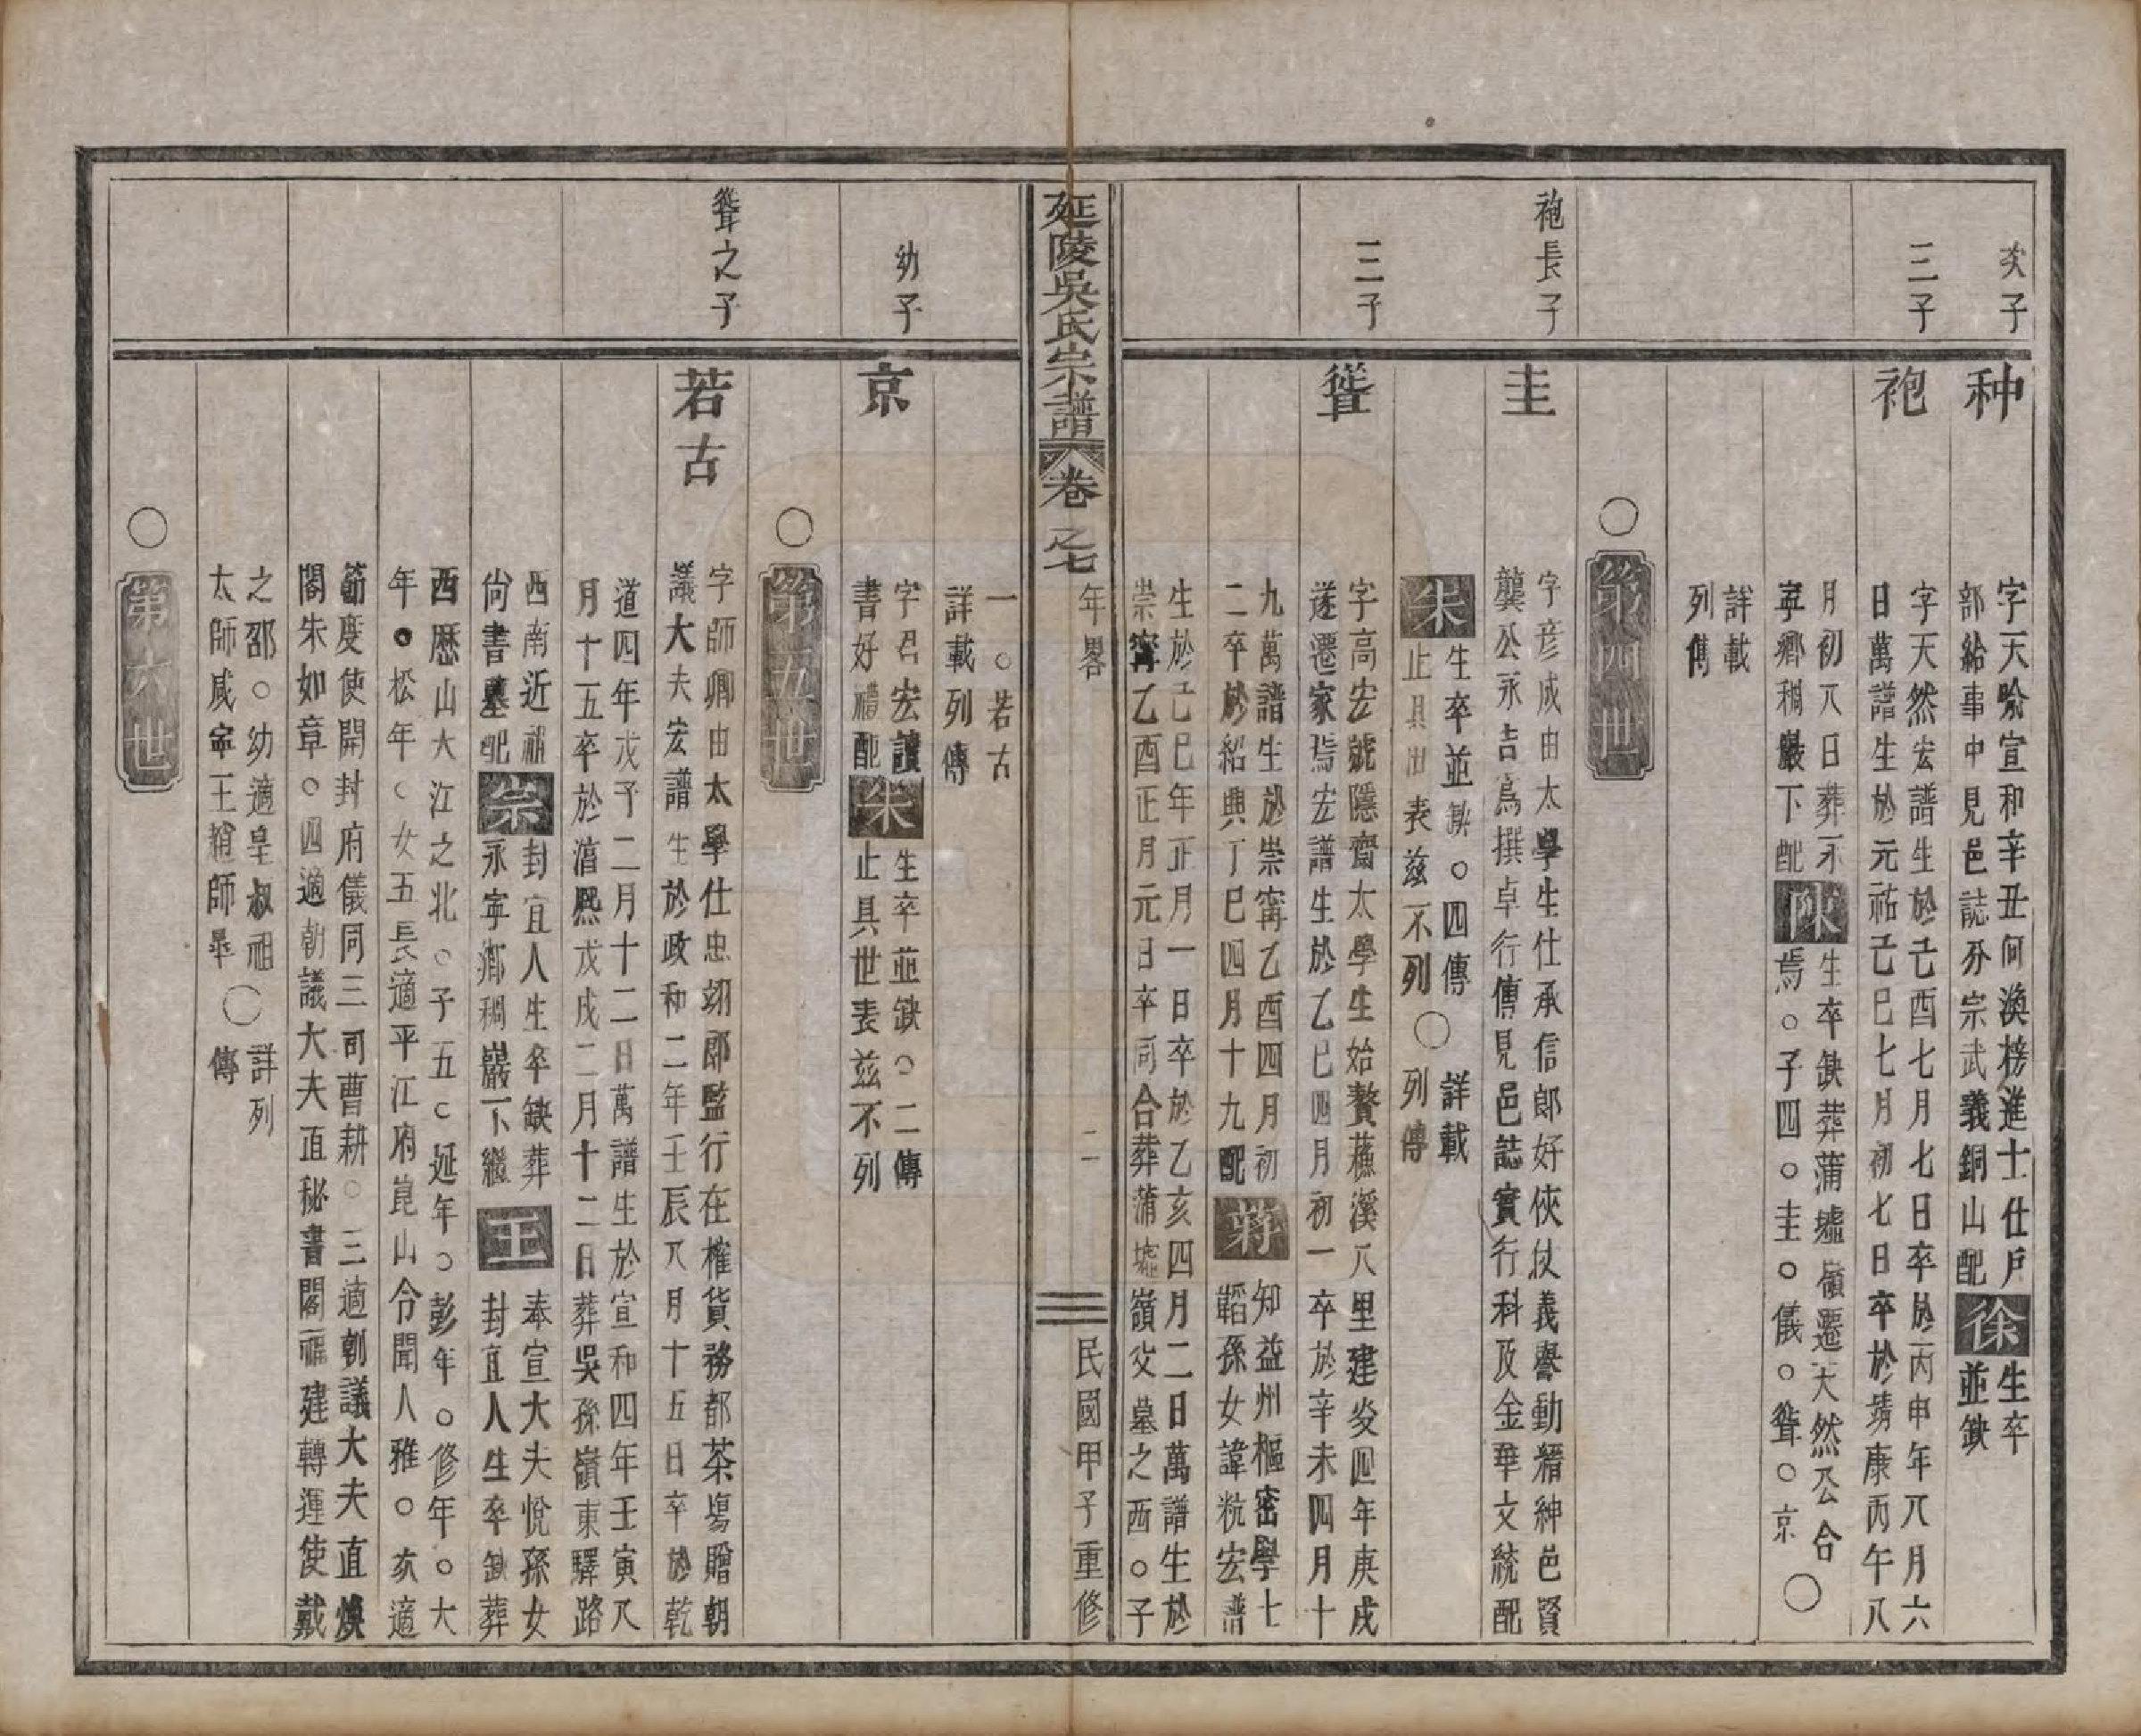 次子
种
字天喻宣和辛丑何渙榜進士仕戶
部給事中見邑誌分宗武義銅山配
徐
生卒
並缺
三子
袍
字天然宏譜生於己酉七月七日卒於丙申年八月六
日萬譜生於元祐己巳七月初七日卒於靖康丙午八
月初八日葬永
寧鄉稠巖下配
陳
生卒缺葬蒲墟嶺遷天然公合
焉○子四○圭○儀○聳○京
○
詳載
列傳
○
第四世
袍長子
圭
字彥成由太學生仕承信郎好俠仗義譽動縉紳邑賢
龔公永吉爲撰卓行傳見邑誌實行科及金華文統配
朱
生卒並缺○四傳
止具世表茲不列
○
詳載
列傳
三子
聳
字高宏號隱齋太學生始贅蘓溪八里建炎四年庚戌
遂遷家焉宏譜生於乙巳四月初一卒於辛未四月十
九萬譜生於崇寧乙酉四月初
二卒於紹興丁巳四月十九配
蔣
知益州樞密學士
韜孫女諱　宏譜
生於己巳年正月一日卒於乙亥四月二日萬譜生於
崇寧乙酉正月元日卒同合葬蒲墟嶺父墓之西○子
延陵吳氏宗譜
卷之七
年畧
二
民國甲子重修
一○若古
詳載列傳
幼子
京
字君宏讀
書好禮配
朱
生卒並缺○二傳
止具世表茲不列
○
第五世
聳之子
若古
字師卿由太學仕忠翊郎監行在榷貨務都茶場贈朝
議大夫宏譜生於政和二年壬辰八月十五日卒於乾
道四年戊子二月十二日萬譜生於宣和四年壬寅八
月十五卒於淳熙戊戌二月十二日葬吳孫嶺東驛路
西南近祖
尙書墓配
宗
封宜人生卒缺葬
永寧鄉稠巖下繼
王
奉宣大夫悅孫女
封宜人生卒缺葬
西歷山大江之北○子五○延年○彭年○修年○大
年○松年○女五長適平江府崑山令聞人雅○次適
節度使開封府儀同三司曹耕○三適朝議大夫直煥
閣朱如章○四適朝議大夫直秘書閣福建轉運使戴
之邵○幼適皇叔祖
太師咸寧王趙師
○
詳列
傳
○
第六世